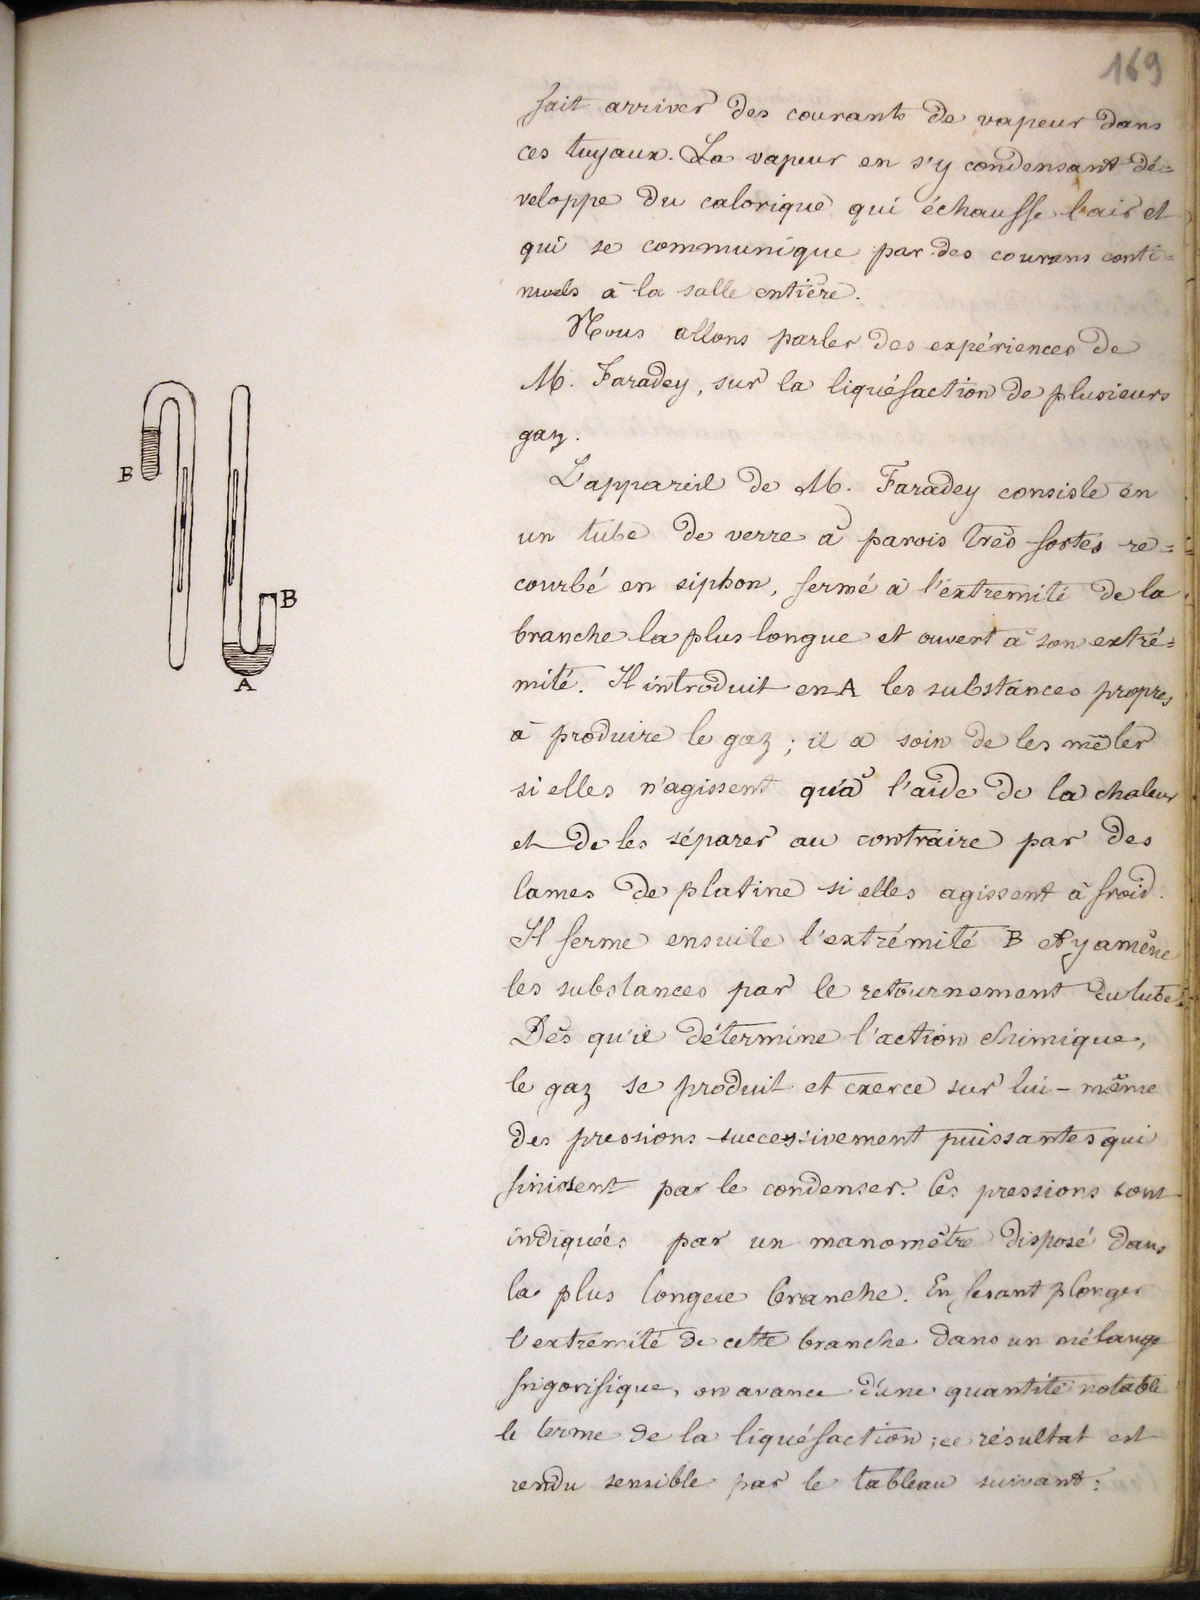 169
fait arriver des courants de vapeur dans
ces tuyaux. La vapeur en s'y condensant dé=
veloppe du calorique qui échauffe l'air et
qui se communique par des courans conti=
nuels à la salle entière.
Nous allons parler des expériences de
M. Faradey, sur la liquéfaction de plusieurs
gaz.
L'appareil de M. Faradey consiste en
un tube de verre à parois très fortes re=
courbé en siphon, fermé à l'extremité de la
branche la plus longue et ouvert à son extré=
mité. Il introduit en A les substances propres
à produire le gaz ; il a soin de les mêler
si elles n'agissent qu'à l'aide de la chaleur
et de les séparer au contraire par des
lames de platine si elles agissent à froid.
Il ferme ensuite l'extrémité B et y amène
les substances par le retournement du tube.
Dès qu'il détermine l'action chimique,
le gaz se produit et exerce sur lui-même
des pressions successivement puissantes qui
finissent par le condenser. Ces pressions sont
indiquées par un manomètre disposé dans
la plus longue branche. En fesant plonger
l'extrémité de cette branche dans un mélange
frigorifique, on avance d'une quantité notable
le terme de la liquéfaction ; ce résultat est
rendu sensible par le tableau suivant :
B
B
A